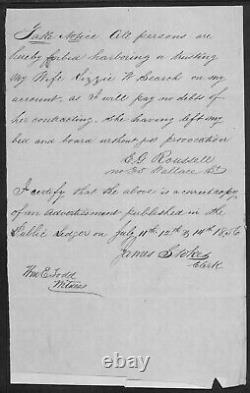 Take Notice All persons are
hereby forbid harboring or trusting
My Wife Lizzie W Search on my
account, as I will pay no debts of
her contracting, she having left my
bed and board without just provocation
E G Roussell
no 35 Wallace St
I certify that the above is a correct copy
of an advertisement published in the
Public Ledger on July 11th 12th & 14th 1856
James Stokes
Clerk
Wm E Todd
Witness